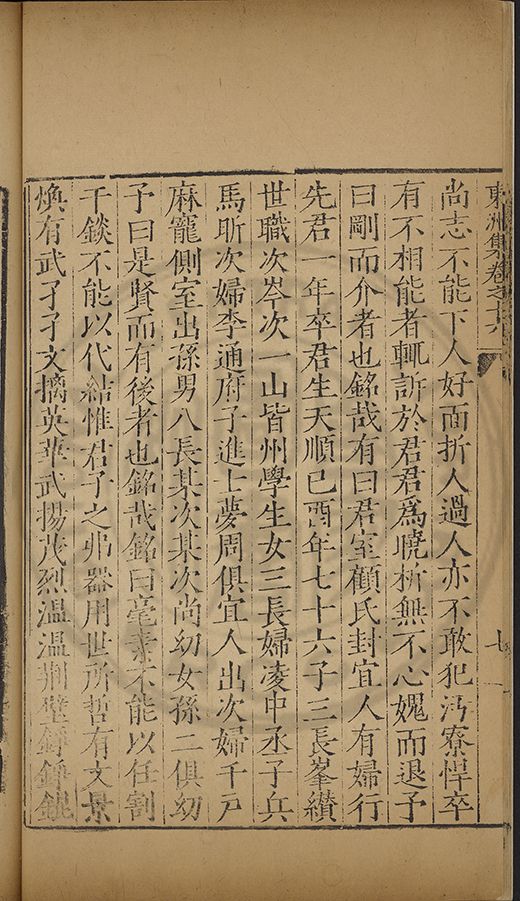 東洲集卷之十六
七
尚志不能下人好面折人過人亦不敢犯汚寮悍卒
有不相能者輒訴於君君爲曉析無不心媿而退予
曰剛而介者也銘哉有曰君室顧氏封宜人有婦行
先君一年卒君生天順己酉年七十六子三長峯纉
世職次岑次一山皆州學生女三長婦凌中丞子兵
馬昕次婦李通府子進士夢周俱宜人出次婦千戸
麻寵側室出孫男八長某次某次尚幼女孫二俱幼
予曰是賢而有後者也銘哉銘曰毫素不能以任割
干錟不能以代結惟君子之弗器用世所哲有文景
煥有武孑孑文摛英華武揚茂烈温温荆璧錚錚錕